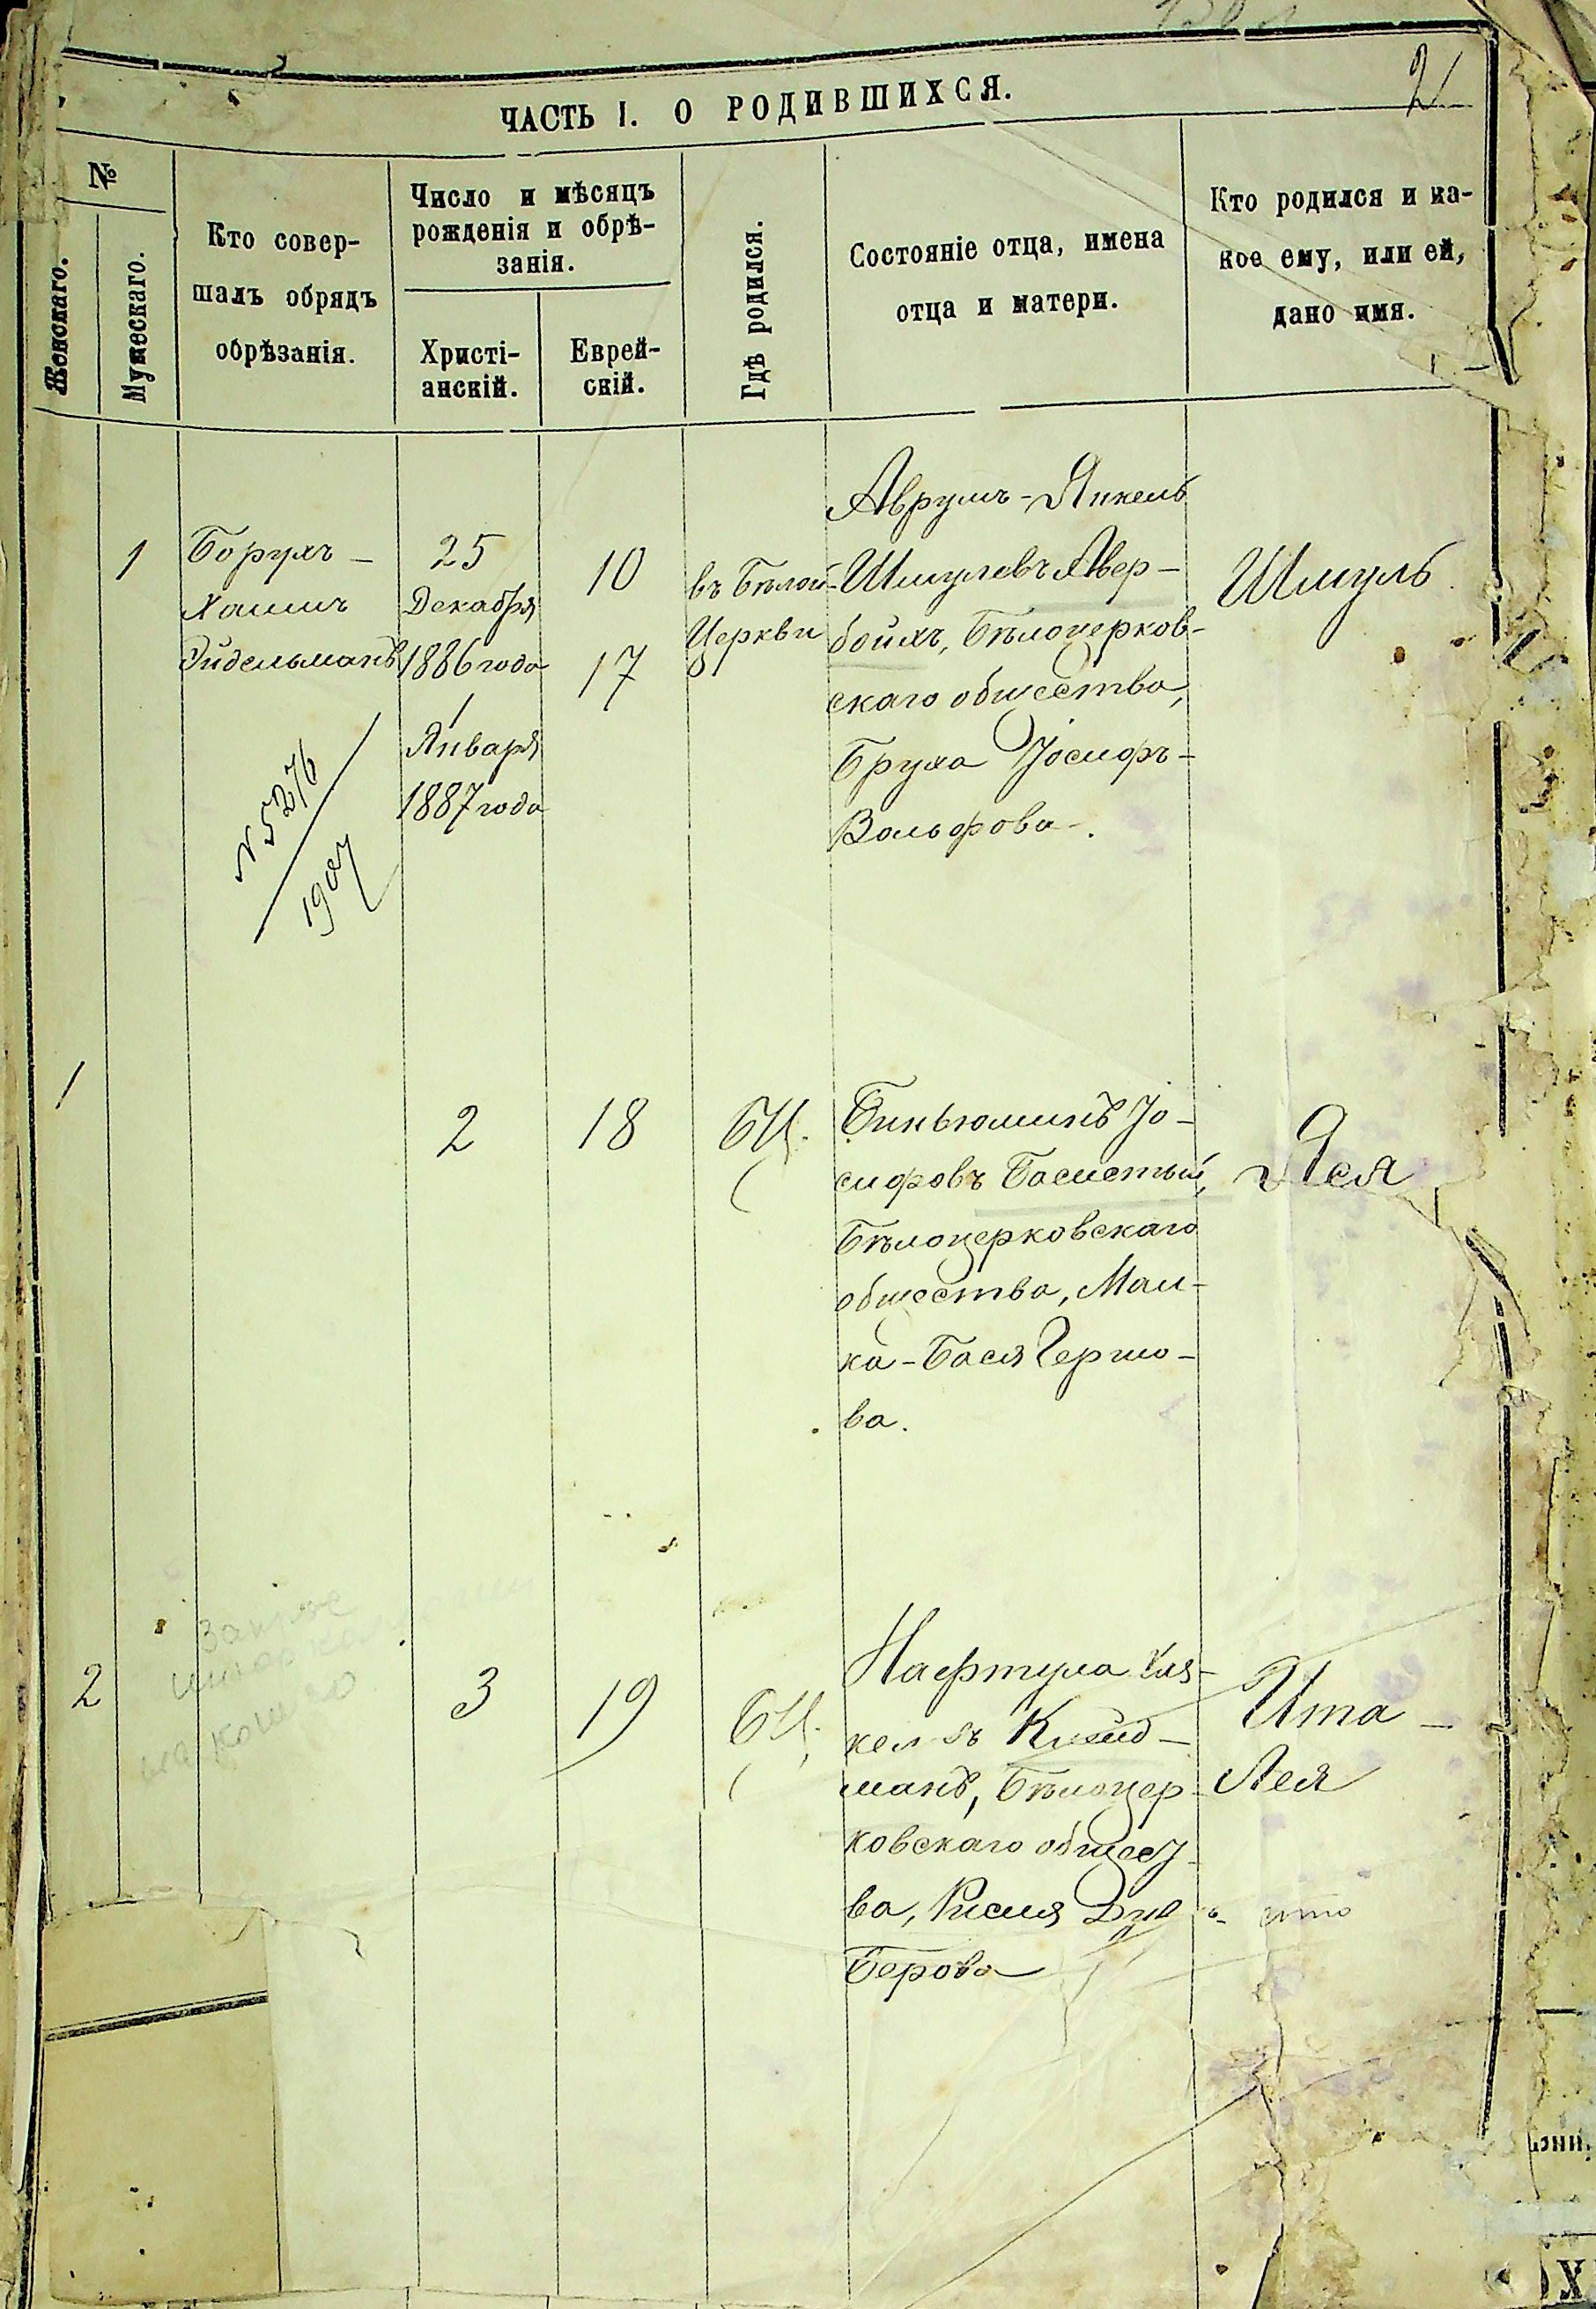 2
ЧАСТЬ I. О РОДИВШИХСЯ.
№
Женскаго.
Мужескаго.
Кто совер-
шалъ обрядъ
обрѣзанія.
Число и мѣсяцъ
рожденія и обрѣ-
занія.
Христі-
анскій.
Еврей-
скій.
Гдѣ родился.
Состояніе отца, имена
отца и матери.
Кто родился и ка-
кое ему, или ей,
дано имя.
1
Борухъ-
Хаимъ
Эйдельманъ
№ 5276
1907
25
Декабря
1886 года
1
Января
1887 года
10
17
въ Бѣлой-
Церкви
Аврумъ-Янкель
Шмулевъ Авер-
бойхъ, Бѣлоцерков-
скаго общества,
Бруха Іосифъ-
Вольфова.
Шмуль
1
2
18
БЦ.
Биньюминъ Іо-
сифовъ Басистый,
Бѣлоцерковскаго
общества, Мал-
ка-Бася Гершо-
ва.
Яся
2
3
19
БЦ.
Нафтула
манъ, Бѣлоцер-
ковскаго общест-
ва, Рисия
Берова
Ита-
Лея